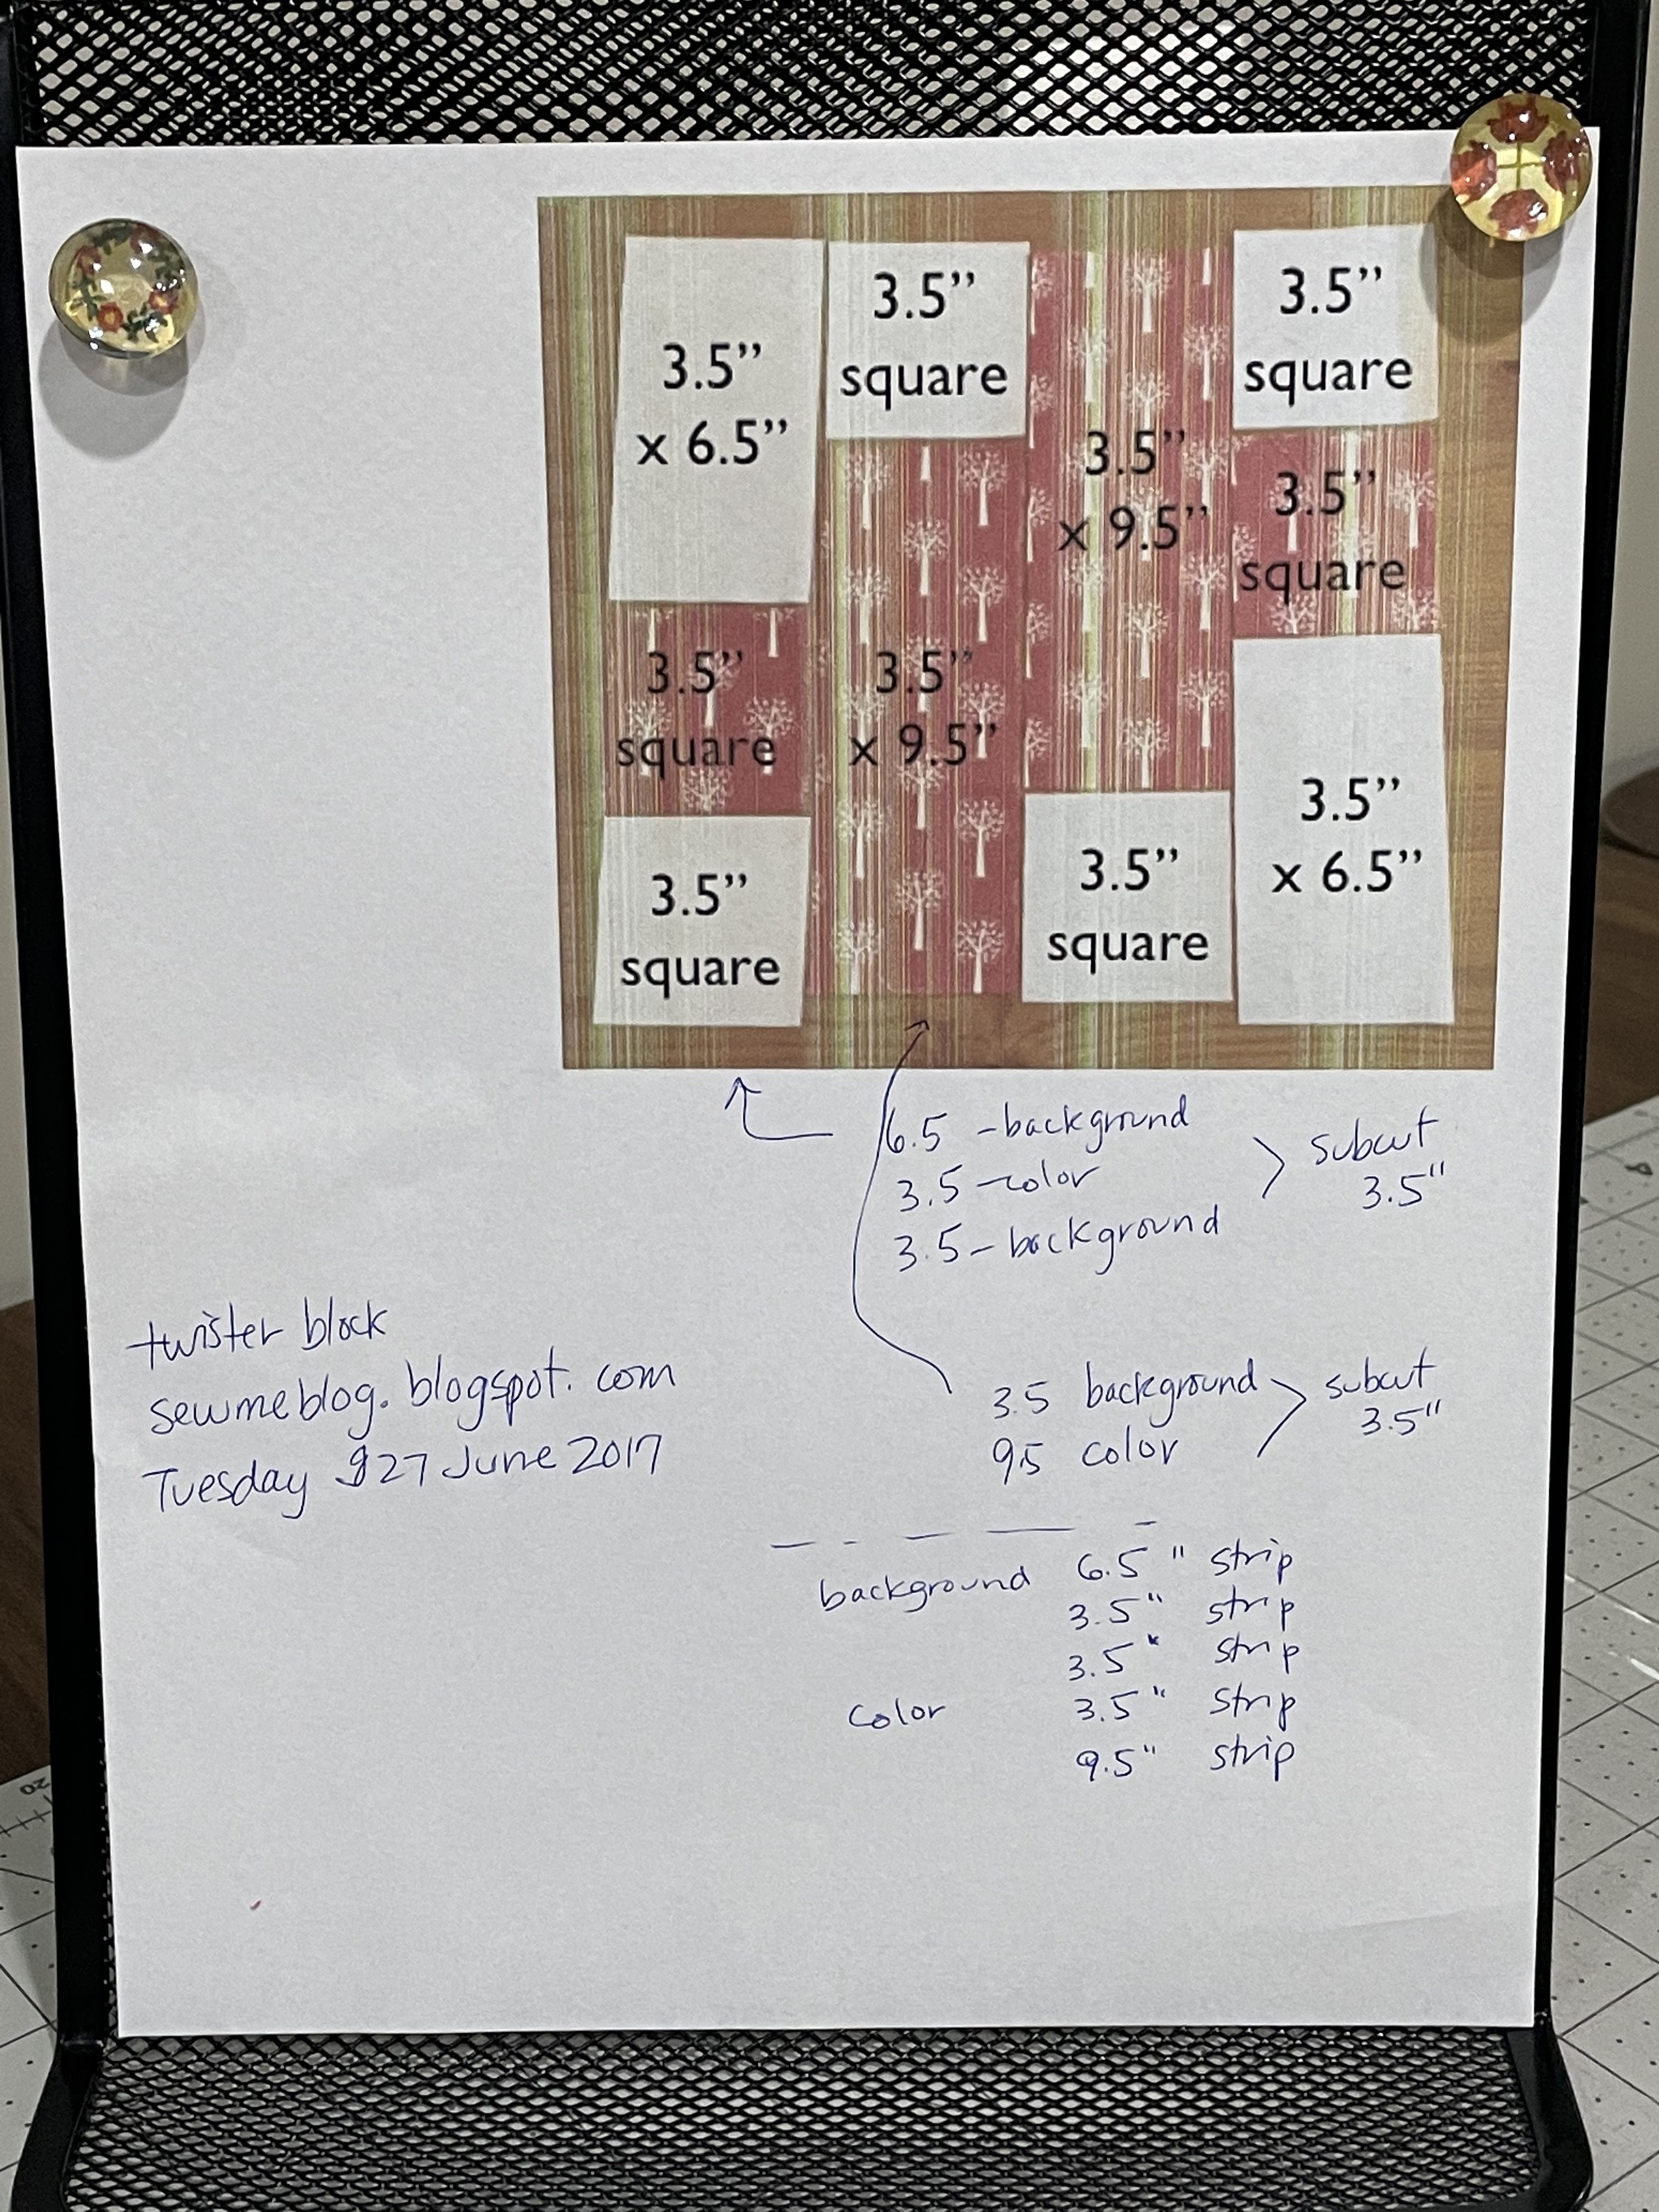 3.5”
x 6.5”
3.5”
square
3.5”
x 9.5”
3.5”
square
3.5”
square
3.5”
square
3.5”
x 9.5”
3.5”
square
3.5”
square
3.5”
x 6.5”
6.5 - background
3.5 - color
3.5 - background
subcut
3.5"
twister block
sewmeblog.blogspot.com
Tuesday 27 June 2017
3.5 background
9.5 color
subcut
3.5"
background 6.5" strip
3.5" strip
3.5" strip
color 3.5" strip
9.5" strip
20